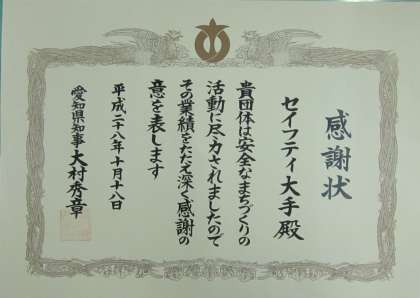 感謝状
セイフティ大手殿
貴団体は安全なまちづくりの
活動に尽力されましたので
その業績をたたえ深く感謝の
意を表します
平成二十八年十月十八日
愛知県知事 大村秀章